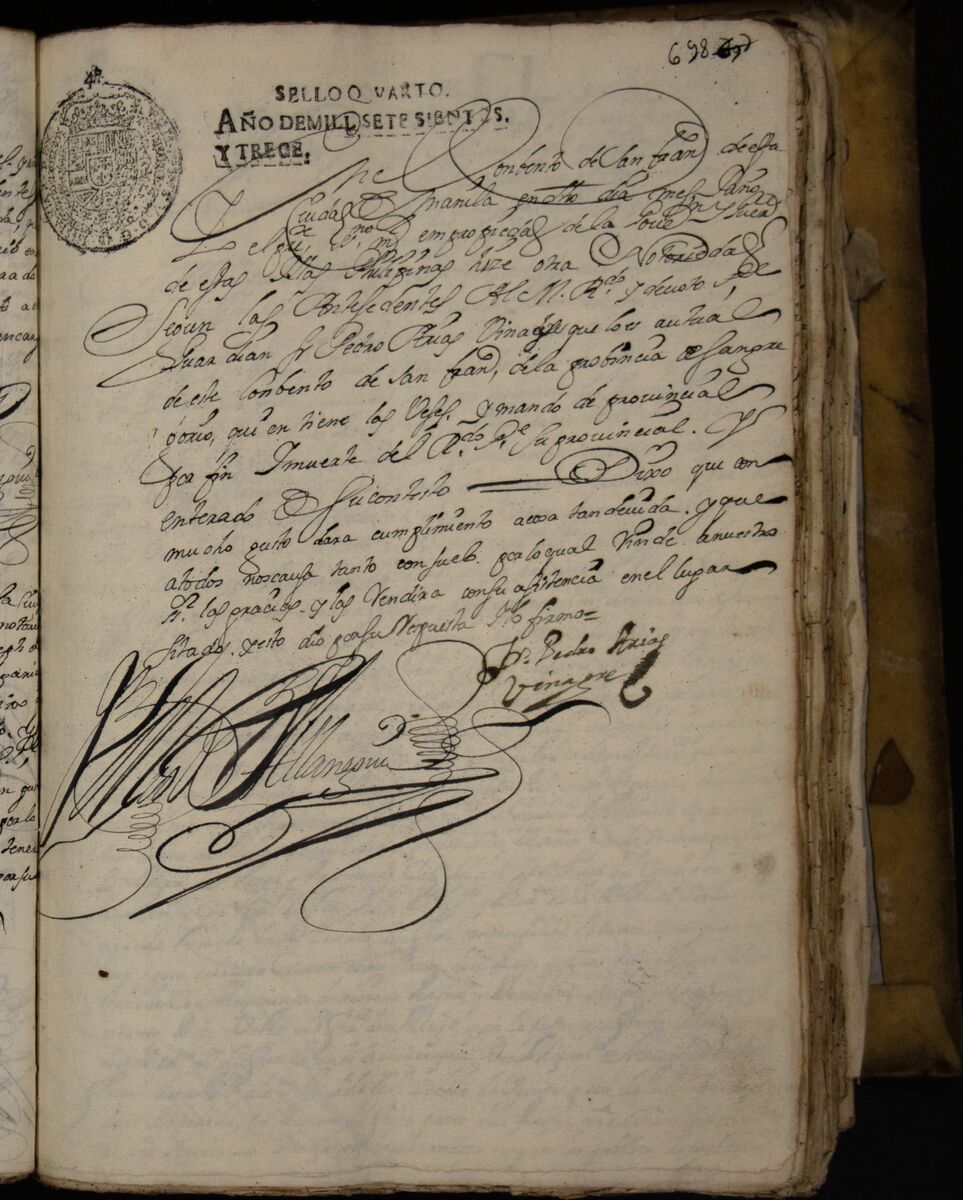 698
4º
SELLO QVARTO.
AÑO DE MILL, SETESIENTOS.
Y TRECE.
Conbento de San fran.co de esta
Ciudad de Manila en dho dia mes y año
en propiedad de la
de estas Yslas Philipinas hize otra Notoriedad
Segun las Antesedentes Al M. R.do y devoto P.e
Guardian fr Pedro Arias Vinagre que lo es autual
de este Conbento de San fran.co, de la probincia de San gre
gorio, quien tiene las Veses, y mando de provincial
por fin y muerte del R.do P.e Su provincial. Y
enterado de Su contesto Dixo que con
mucho gusto dara cumplimiento acosa tan devida. y que
atodos nos causa tanto consuelo. por lo qual Rinde anuestro
S.r las gracias. y las Rendira con su asistencia en el lugar
Sitado. y esto dio por su Respuesta y lo firmo=
Fr. Pedro Arias
Vinagre
Villanueva